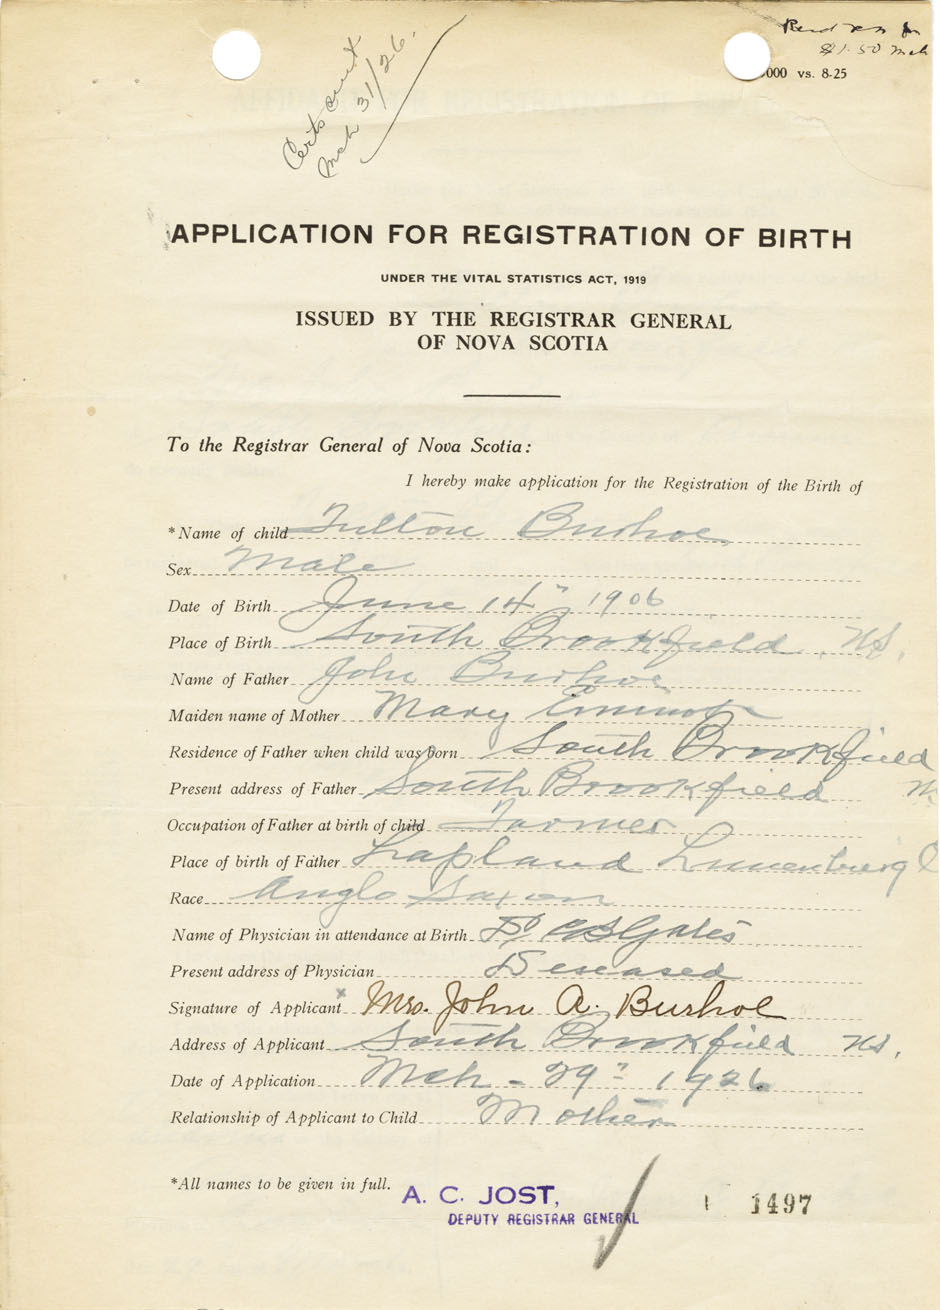 Certs sent
Mch 31/26.
$1.50 Mch
000 vs. 8-25
APPLICATION FOR REGISTRATION OF BIRTH
UNDER THE VITAL STATISTICS ACT, 1919
ISSUED BY THE REGISTRAR GENERAL
OF NOVA SCOTIA
To the Registrar General of Nova Scotia:
I hereby make application for the Registration of the Birth of
*Name of child Fulton Bushoe
Sex Male
Date of Birth June 14" 1906
Place of Birth South Brookfield, NS.
Name of Father John Bushoe
Maiden name of Mother Mary
Residence of Father when child was born South Brookfield
Present address of Father South Brookfield
Occupation of Father at birth of child Farmer
Place of birth of Father Lapland Lunenburg
Race Anglo Saxon
Name of Physician in attendance at Birth Dr Gates
Present address of Physician Deseased
Signature of Applicant x Mrs. John A. Bushoe
Address of Applicant South Brookfield NS.
Date of Application Mch - 29" 1926
Relationship of Applicant to Child Mother
*All names to be given in full.
A. C. JOST,
DEPUTY REGISTRAR GENERAL
1497